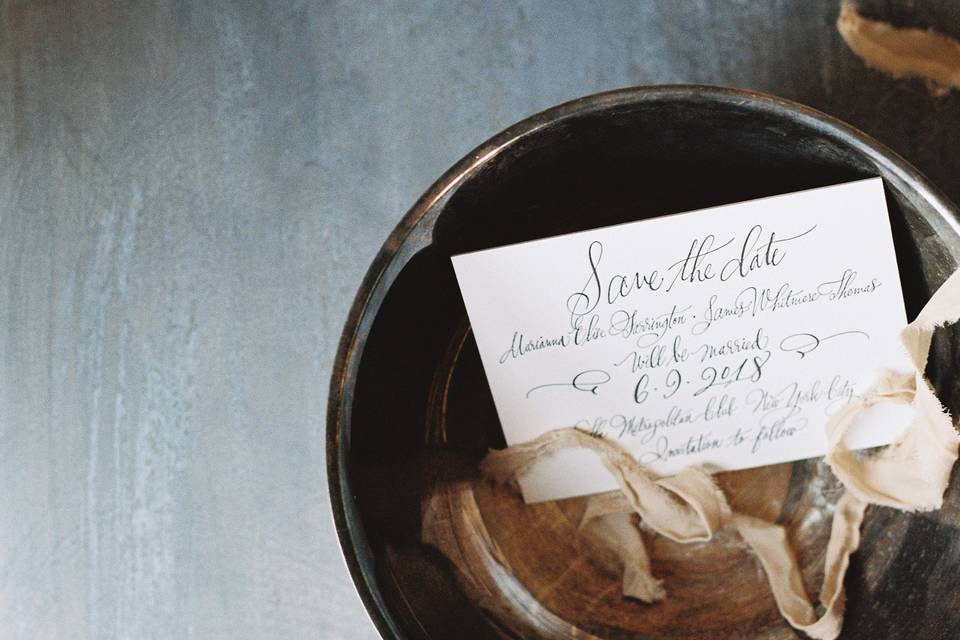 Save the date
Marianna Elise Farrington · James Whitmore Thomas
will be married
6·9·2018
Metropolitan Club New York City
Invitation to follow